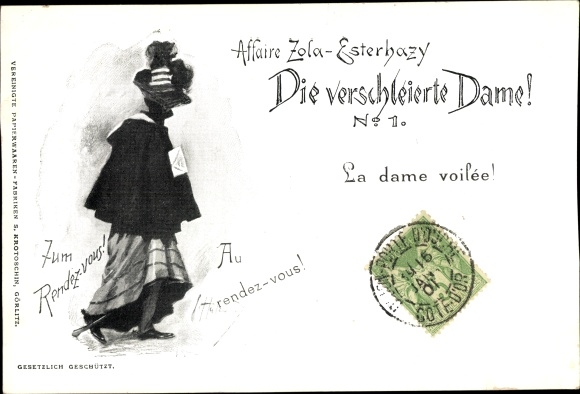 Affaire Zola-Esterhazy
Die verschleierte Dame!
No. 1.
La dame voilée!
Zum
Rendez-vous!
Au
rendez-vous!
GESETZLICH GESCHÜTZT.
VEREINIGTE PAPIERWAAREN-FABRIKEN S. KROTOSCHIN, GÖRLITZ.
COTE D'OR